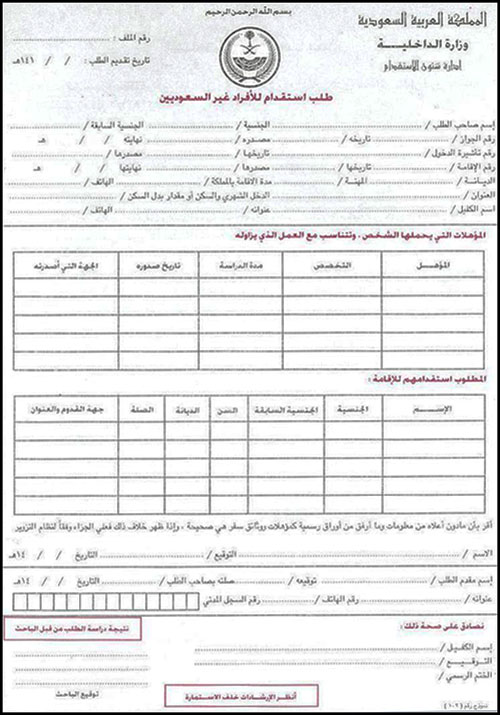 بسم الله الرحمن الرحيم
المملكة العربية السعودية
وزارة الداخلية
ادارة شئون الاستقدام
رقم الملف :
تاريخ تقديم الطلب : / / ١٤١هـ
طلب استقدام للأفراد غير السعوديين
إسم صاحب الطلب / الجنسية / الجنسية السابقة /
رقم الجواز / تاريخه / مصدره / نهايته / / هـ
رقم تأشيرة الدخول / تاريخها / مصدرها /
رقم الإقامة / تاريخها / مصدرها / نهايتها / / هـ
الديانة / المهنة / مدة الاقامة بالمملكة / الهاتف /
العنوان / الدخل الشهري والسكن أو مقدار بدل السكن /
اسم الكفيل / عنوانه / الهاتف /
المؤهلات التي يحملها الشخص ، وتتناسب مع العمل الذي يزاوله
المؤهل التخصص مدة الدراسة تاريخ صدوره الجهة التي أصدرته
المطلوب استقدامهم للإقامة :
الإسم الجنسية الجنسية السابقة السن الديانة الصلة جهة القدوم والعنوان
أقر بأن مادون أعلاه من معلومات وما أرفق من أوراق رسمية كمؤهلات ووثائق سفر هي صحيحة ، وإذا ظهر خلاف ذلك فعلي الجزاء وفقاً لنظام التزوير
الاسم / التوقيع / التاريخ / / ١٤هـ
إسم مقدم الطلب / توقيعه / صلته بصاحب الطلب / التاريخ / / ١٤هـ
عنوانه / رقم الهاتف / رقم السجل المدني
نصادق على صحة ذلك :
نتيجة دراسة الطلب من قبل الباحث
إسم الكفيل /
التوقيع /
الختم الرسمي /
توقيع الباحث
أنظر الإرشادات خلف الاستمارة
نموذج رقم (١٠٢)